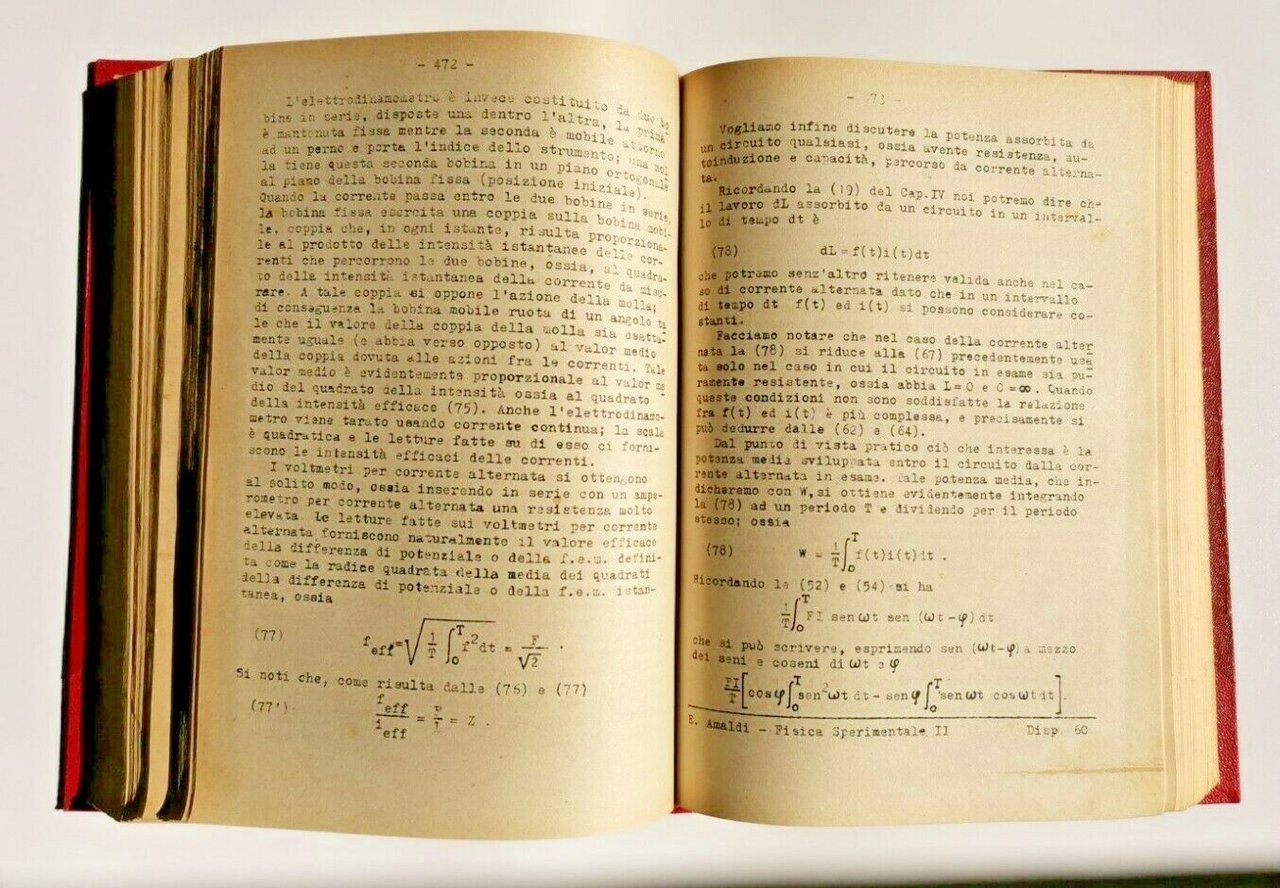 - 472 -
L'elettrodinamometro è invece costituito da due bo
bine in serie, disposte una dentro l'altra, la prima
è mantenuta fissa mentre la seconda è mobile attorno
ad un perno e porta l'indice dello strumento; una mol
la tiene questa seconda bobina in un piano ortogonale
al piano della bobina fissa (posizione iniziale).
Quando la corrente passa entro le due bobine in serie,
la bobina fissa esercita una coppia sulla bobina mobi-
le, coppia che, in ogni istante, risulta proporziona-
le al prodotto delle intensità istantanee delle cor-
renti che percorrono le due bobine, ossia, al quadra-
to della intensità istantanea della corrente da misu-
rare. A tale coppia si oppone l'azione della molla;
di conseguenza la bobina mobile ruota di un angolo ta
le che il valore della coppia della molla sia esatta-
mente uguale (e abbia verso opposto) al valor medio
della coppia dovuta alle azioni fra le correnti. Tale
valor medio è evidentemente proporzionale al valor me
dio del quadrato della intensità ossia al quadrato
della intensità efficace (75). Anche l'elettrodinamo-
metro viene tarato usando corrente continua; la scala
è quadratica e le letture fatte su di esso ci forni-
scono le intensità efficaci delle correnti.
I voltmetri per corrente alternata si ottengono
al solito modo, ossia inserendo in serie con un ampe-
rometro per corrente alternata una resistenza molto
elevata. Le letture fatte sui voltmetri per corrente
alternata forniscono naturalmente il valore efficace
della differenza di potenziale o della f.e.m. defini-
ta come la radice quadrata della media dei quadrati
della differenza di potenziale o della f.e.m. istan-
tanea, ossia
(77) f eff = √ 1/T ∫0T f²dt = F/√2 .
Si noti che, come risulta dalle (76) e (77)
(77') f eff / i eff = F/I = Z .
- 73 -
Vogliamo infine discutere la potenza assorbita da
un circuito qualsiasi, ossia avente resistenza, au-
toinduzione e capacità, percorso da corrente alterna-
ta.
Ricordando la (19) del Cap.IV noi potremo dire che
il lavoro dL assorbito da un circuito in un interval-
lo di tempo dt è
(78) dL=f(t)i(t)dt
che potremo senz'altro ritenere valida anche nel ca-
so di corrente alternata dato che in un intervallo
di tempo dt f(t) ed i(t) si possono considerare co-
stanti.
Facciamo notare che nel caso della corrente alter
nata la (78) si riduce alla (67) precedentemente usa
ta solo nel caso in cui il circuito in esame sia pu-
ramente resistente, ossia abbia L=0 e C=∞. Quando
queste condizioni non sono soddisfatte la relazione
fra f(t) ed i(t) è più complessa, e precisamente si
può dedurre dalle (62) e (64).
Dal punto di vista pratico ciò che interessa è la
potenza media sviluppata entro il circuito dalla cor-
rente alternata in esame. Tale potenza media, che in-
dicheremo con W, si ottiene evidentemente integrando
la (78) ad un periodo T e dividendo per il periodo
stesso; ossia
(78) W = 1/T ∫0T f(t)i(t)dt .
Ricordando la (52) e (54) si ha
1/T ∫0T FI sen ωt sen (ωt-φ) dt
che si può scrivere, esprimendo sen (ωt-φ) a mezzo
dei seni e coseni di ωt e φ
FI/T [cosφ ∫0T sen²ωt dt - senφ ∫0T senωt cosωt dt].
E. Amaldi - Fisica Sperimentale II Disp. 60